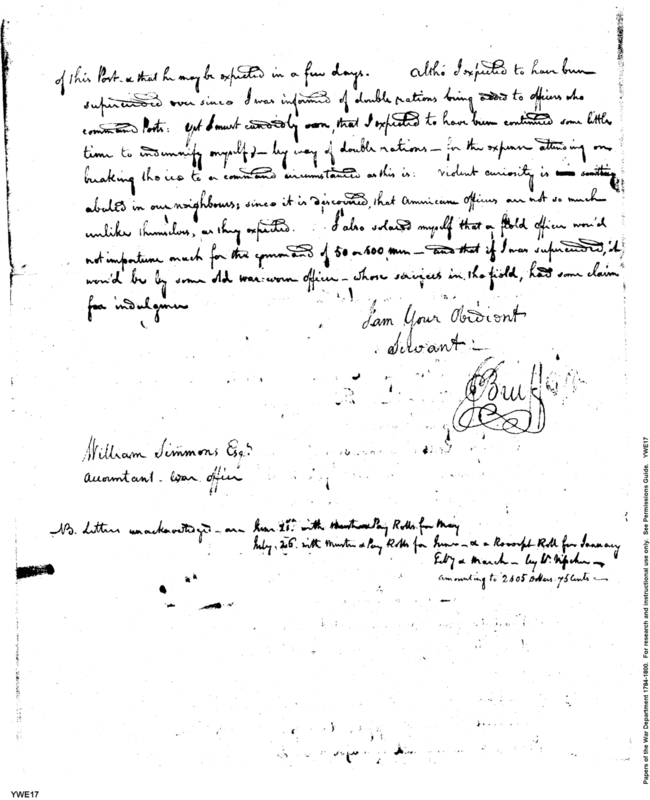 of this Post - & that he may be expected in a few days. Altho I expected to have been
superceeded ever since I was informed of double rations being to officers who
command Posts: yet I must candidly own, that I expected to have been continued some little
time to indemnify myself - by way of double rations - for the expense attending on
breaking the ice to a command circumstanced as this is: violent curiosity is
abated in our neighbours; since it is discovered, that American officers are not so much
unlike themselves, as they expected. I also solaced myself that a field officer wou'd
not importune much for the command of 50 or 500 men - and that if I was superceeded, 't
wou'd be by some old war-worn officer - whose services in the field, had some claim
for indulgence
I am Your Obedient
Servant -
Bruff
William Simmons Esqr.
Accountant - War office
NB. Letters unacknowledged - are June 25th with Muster & Pay Rolls for May
July 26. with Muster & Pay Rolls for June - & a Receipt Roll for January
Feby & March - by
amounting to 2605 Dollars 75 Cents -
YWE17
Papers of the War Department 1784-1800. For research and instructional use only. See Permissions Guide. YWE17